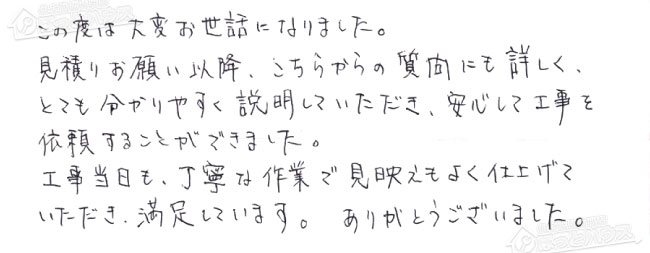 この度は大変お世話になりました。
見積りお願い以降、こちらからの質問にも詳しく、
とても分かりやすく説明していただき、安心して工事を
依頼することができました。
工事当日も、丁寧な作業で見映えもよく仕上げて
いただき、満足しています。 ありがとうございました。